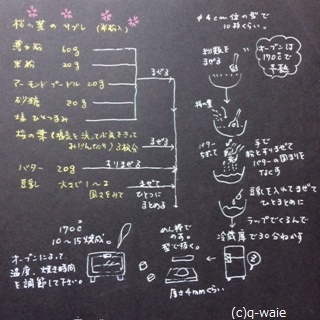 桜の葉のサブレ (米粉入)
薄力粉 60g
米粉 20g
アーモンドプードル 20g
砂糖 20g
塩 ひとつまみ
まぜる
桜の葉(塩気を洗って水気をきって
みじんぎり) 3枚分
まぜる
バター 20g
すりまぜる
豆乳 大さじ1〜2
固さをみて
まぜて
ひとつに
まとめる
*4cm位の型で
10枚くらい。
オーブンは
170℃で
予熱
粉類を
まぜる
桜の葉
バター
手で
粉とすりまぜて
バターの固まりを
なくす
豆乳を入れてまぜて
ひとまとめに
ラップでくるんで
冷蔵庫で30分ねかす
めん棒で
のす。
型でぬく。
厚さ4mmくらい
170℃
10〜15分焼成。
オーブンによって
温度、焼き時間
を調節して下さい。
(c)q-waie